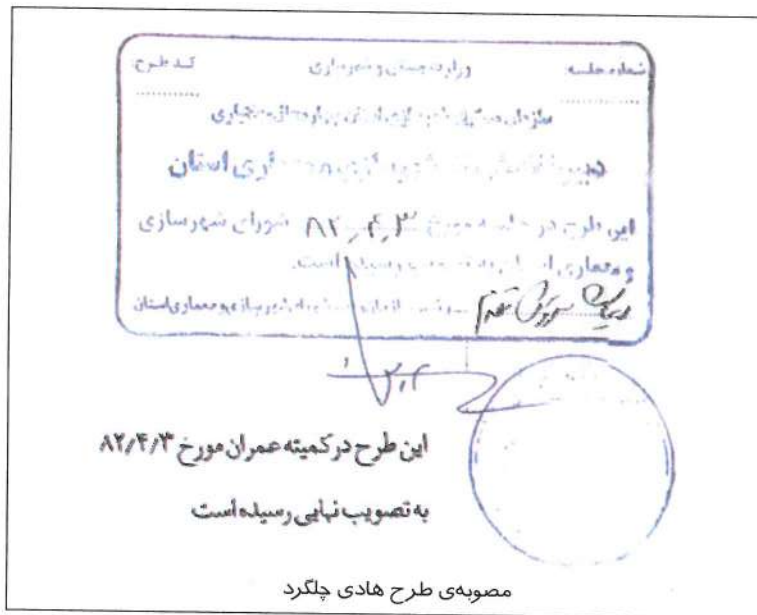 شماره جلسه:
وزارت مسکن و شهرسازی
کد طرح:
سازمان مسکن و شهرسازی استان چهارمحال و بختیاری
دبیرخانه شورای شهرسازی و معماری استان
این طرح در جلسه مورخ ۸۲٫۴٫۳ شورای شهرسازی
و معماری استان به تصویب رسیده است.
شهرسازی و معماری استان
این طرح در کمیته عمران مورخ ۸۲/۴/۳
به تصویب نهایی رسیده است
مصوبه‌ی طرح هادی چلگرد